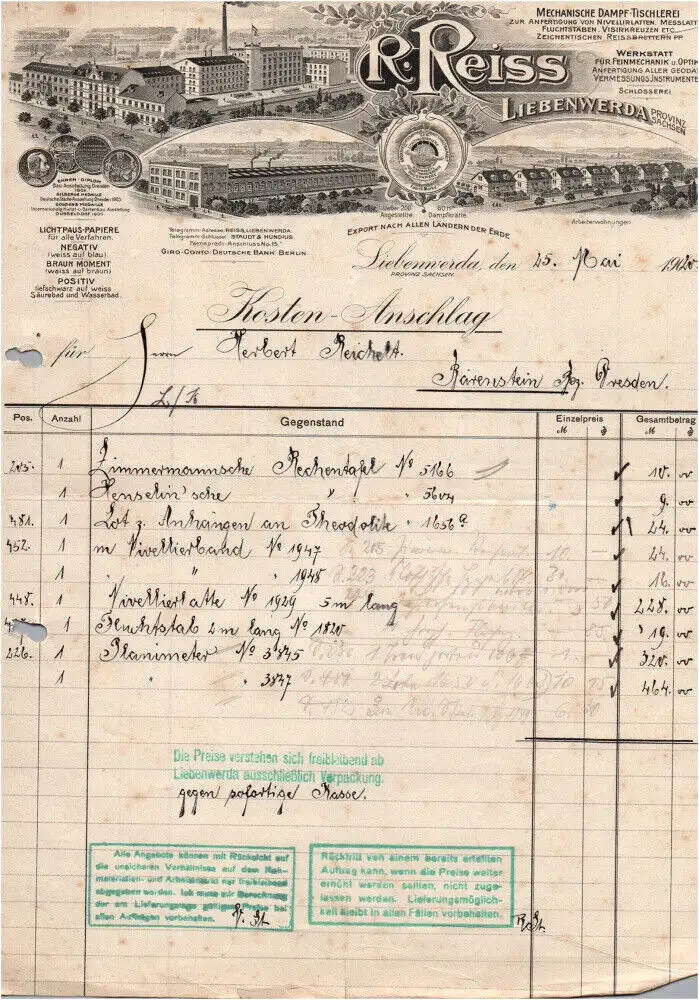 Mechanische Dampf-Tischlerei
zur Anfertigung von Nivellirlatten, Messlat
Fluchtstäben, Visirkreuzen etc.
Zeichentischen, Reissbrettern pp.
R. Reiss
Werkstatt
für Feinmechanik u. Optik
Anfertigung aller Geodä
Vermessungs-Instrumente
Schlosserei
Liebenwerda Provinz Sachsen
Ehren-Diplom
Silberne Medaille
Goldene Medaille
Düsseldorf
Ueber 200 Angestellte
60 H. Dampfkräfte
Arbeiterwohnungen
Export nach allen Ländern der Erde
Lichtpaus-Papiere
für alle Verfahren.
Negativ
(weiss auf blau)
Braun Moment
(weiss auf braun)
Positiv
tiefschwarz auf weiss
Säurebad und Wasserbad.
Telegramm-Adresse: Reiss, Liebenwerda.
Telegramm-Schlüssel: Staudt & Hundius
Fernsprech-Anschluss No. 15.
Giro-Conto Deutsche Bank Berlin
Liebenwerda, den 25. Mai 1920
Provinz Sachsen
Kosten-Anschlag
für Herrn Herbert Reichelt.
Bärenstein Bz. Dresden.
Pos. Anzahl Gegenstand Einzelpreis Gesamtbetrag
M ₰ M ₰
205. 1 Zimmermannsche Rechentafel No 5166 10. 00
1 Henselin'sche " " 5604 9. 00
481. 1 Lot z. Anhängen an Theodolite " 1656a 24. 00
452. 1 m Nivellierband No 1947 24. 00
1 " " " 1948 16. 00
448. 1 Nivellierlatte No 1929 5 m lang 228. 00
1 Fluchtstab 2 m lang No 1820 19. 00
226. 1 Planimeter No 3845 320. 00
1 " " 3847 464. 00
Die Preise verstehen sich freibleibend ab
Liebenwerda ausschließlich Verpackung.
gegen sofortige Kasse.
Alle Angebote können mit Rücksicht auf
die unsicheren Verhältnisse auf dem Roh-
materialien- und Arbeitsmarkt nur freibleibend
abgegeben werden. Ich muss mir Berechnung
der am Lieferungstage gültigen Preise bei
allen Aufträgen vorbehalten.
Rücktritt von einem bereits erteilten
Auftrag kann, wenn die Preise weiter
erhöht werden sollten, nicht zuge-
lassen werden. Lieferungsmöglich-
keit bleibt in allen Fällen vorbehalten.